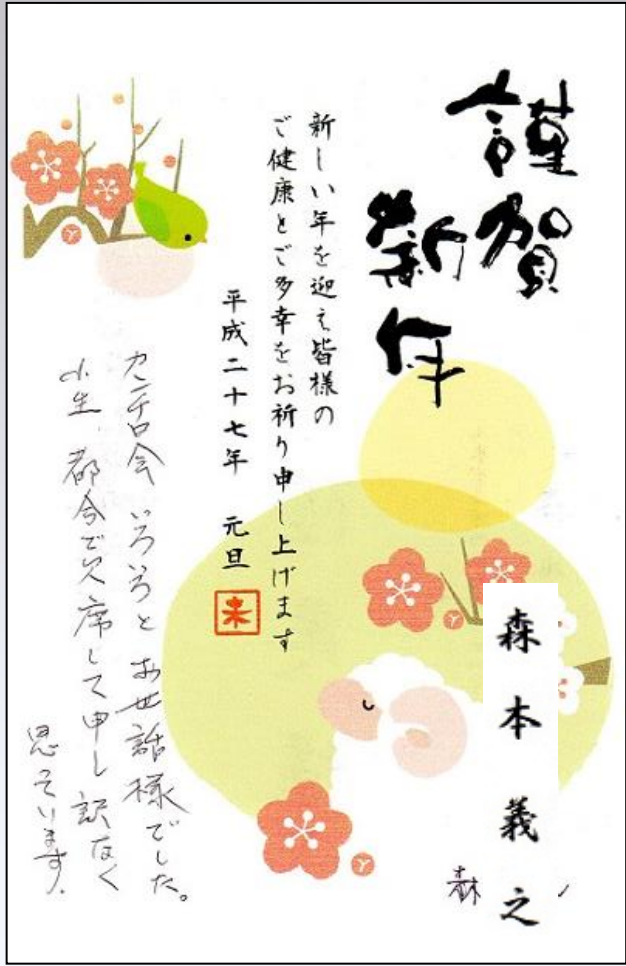 謹賀
新年
新しい年を迎え皆様の
ご健康とご多幸をお祈り申し上げます
平成二十七年 元旦
未
会 いろいろとお世話様でした。
小生、都合で欠席して申し訳なく
思っています。
森本義之
森